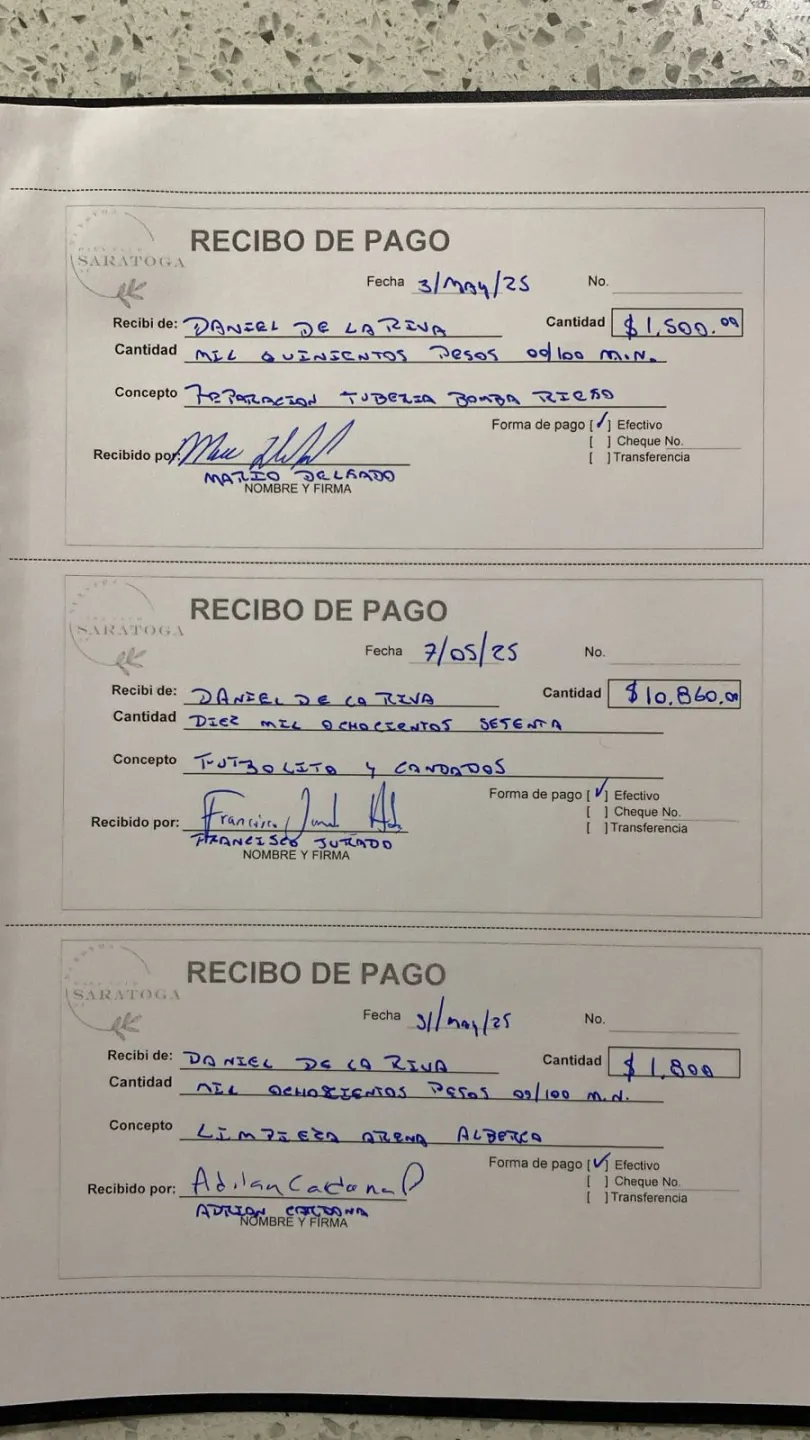 RECIBO DE PAGO
SARATOGA
Fecha 3/MAY/25 No.
Recibi de: DANIEL DE LA RIVA Cantidad $1,500.00
Cantidad MIL QUINIENTOS PESOS 00/100 M.N.
Concepto REPARACION TUBERIA BOMBA RIEGO
Forma de pago [✓] Efectivo
[ ] Cheque No.
[ ] Transferencia
Recibido por:
MARIO DELGADO
NOMBRE Y FIRMA
RECIBO DE PAGO
SARATOGA
Fecha 7/05/25 No.
Recibi de: DANIEL DE LA RIVA Cantidad $10,860.00
Cantidad DIEZ MIL OCHOCIENTOS SETENTA
Concepto FUTBOLITO Y CANDADOS
Forma de pago [✓] Efectivo
[ ] Cheque No.
[ ] Transferencia
Recibido por: Francisco
FRANCISCO JURADO
NOMBRE Y FIRMA
RECIBO DE PAGO
SARATOGA
Fecha /May/25 No.
Recibi de: DANIEL DE LA RIVA Cantidad $1,800
Cantidad MIL OCHOCIENTOS PESOS 00/100 M.N.
Concepto LIMPIEZA ARENA ALBERCA
Forma de pago [✓] Efectivo
[ ] Cheque No.
[ ] Transferencia
Recibido por: Adrian Cardona
ADRIAN CARDONA
NOMBRE Y FIRMA